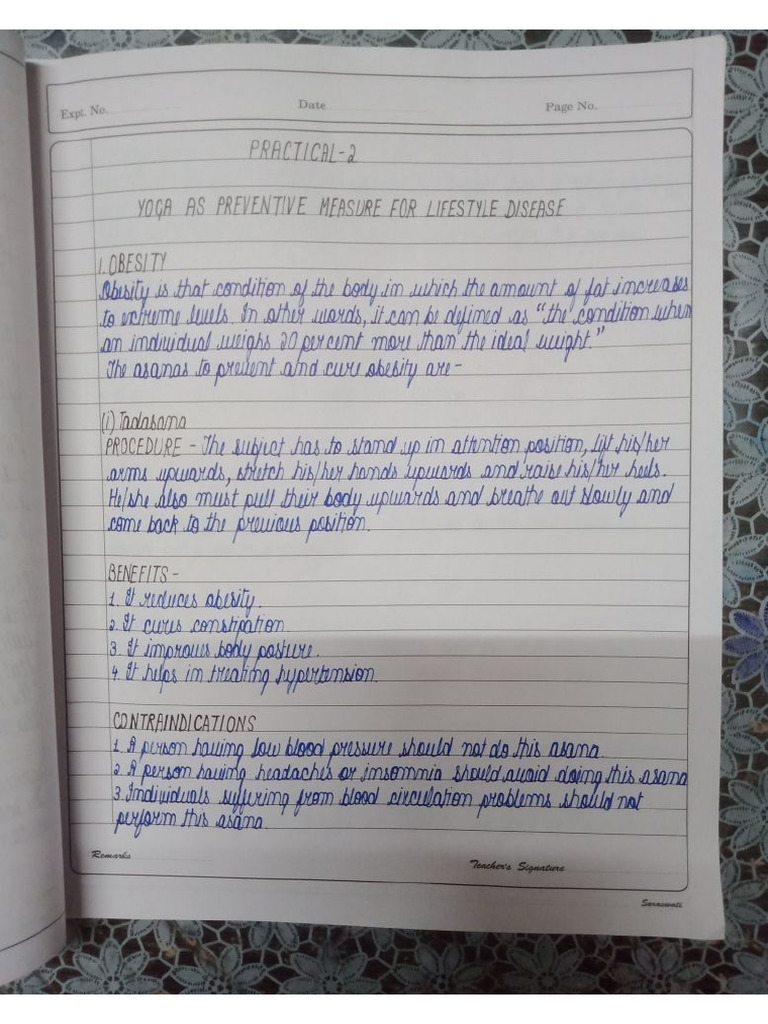 Expt. No. Date Page No.
PRACTICAL-2
YOGA AS PREVENTIVE MEASURE FOR LIFESTYLE DISEASE
1. OBESITY
Obesity is that condition of the body in which the amount of fat increases
to extreme levels. In other words, it can be defined as "the condition when
an individual weighs 20 percent more than the ideal weight."
The asanas to prevent and cure obesity are -
(i) Tadasana
PROCEDURE - The subject has to stand up in attention position, lift his/her
arms upwards, stretch his/her hands upwards and raise his/her heels.
He/she also must pull their body upwards and breathe out slowly and
come back to the previous position.
BENEFITS -
1. It reduces obesity.
2. It cures constipation
3. It improves body posture.
4. It helps in treating hypertension.
CONTRAINDICATIONS
1. A person having low blood pressure should not do this asana.
2. A person having headaches or insomnia should avoid doing this asana
3. Individuals suffering from blood circulation problems should not
perform this asana.
Remarks
Teacher's Signature
Saraswati